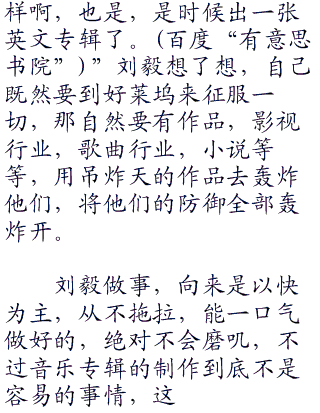 样啊，也是，是时候出一张
英文专辑了。(百度“有意思
书院”)”刘毅想了想，自己
既然要到好菜坞来征服一
切，那自然要有作品，影视
行业，歌曲行业，小说等
等，用吊炸天的作品去轰炸
他们，将他们的防御全部轰
炸开。
刘毅做事，向来是以快
为主，从不拖拉，能一口气
做好的，绝对不会磨叽，不
过音乐专辑的制作到底不是
容易的事情，这